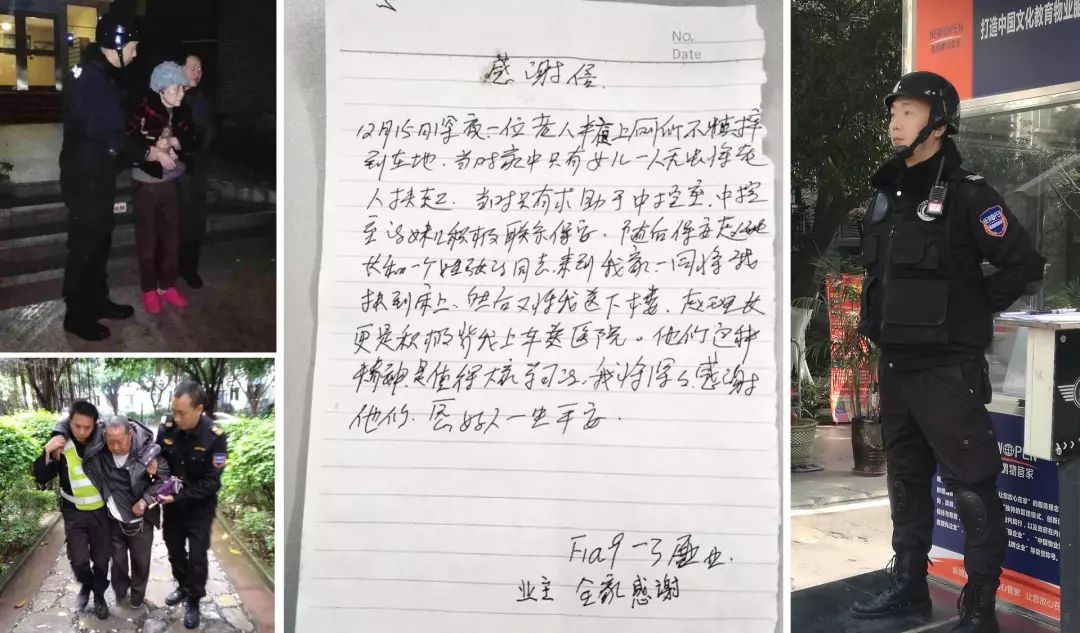 No.
Date
感谢信.
12月15日深夜一位老人半夜上厕所不慎摔
到在地. 当时家中只有女儿一人无法将老
人扶起. 当时只有求助于中控室. 中控
室的妹儿积极联系保安. 随后保安赵班
长和一个姓张的同志来到我家一同将我
扶到床上. 然后又将我送下楼. 赵班长
更是积极背我上车送医院。他们这种
精神是值得大家学习的. 我将深深感谢
他们. 愿好人一生平安.
业主 全家感谢
NEW OPEN
打造中国文化教育物业服